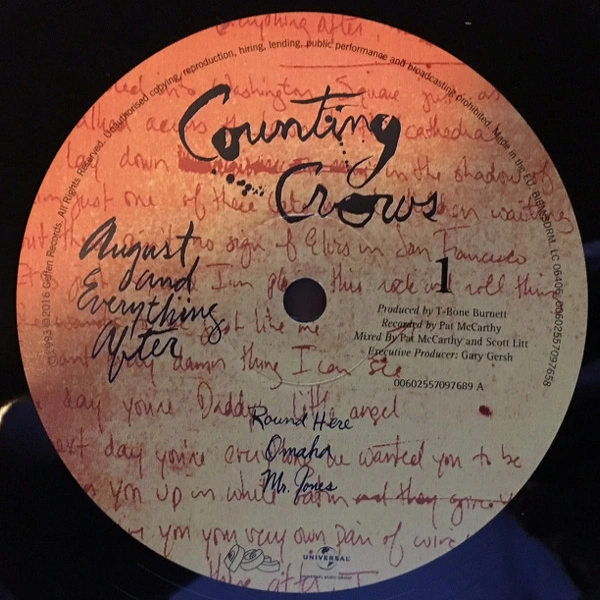 Everything After,
1993 © 2016 Geffen Records. All Rights Reserved. Unauthorised copying, reproduction, hiring, lending, public performance and broadcasting prohibited. Made in the EU. BIEM/SDRM. LC 06406. 00602557097658
Washington Square just as
walked across the cathedral
lay down in the shadow of
just one of these waiting
sign of Elvis in San Francisco
this rock and roll thing
just like me
every damn thing I can see
day you're Daddy's little angel
next day you're everyone wanted you to be
you up in white satin and they give
you your very own pair of
after, I
Counting
Crows
August
and
Everything
After
1
Produced by T-Bone Burnett
Recorded by Pat McCarthy
Mixed By Pat McCarthy and Scott Litt
Executive Producer: Gary Gersh
00602557097689 A
Round Here
Omaha
Mr. Jones
UNIVERSAL
UNIVERSAL MUSIC GROUP